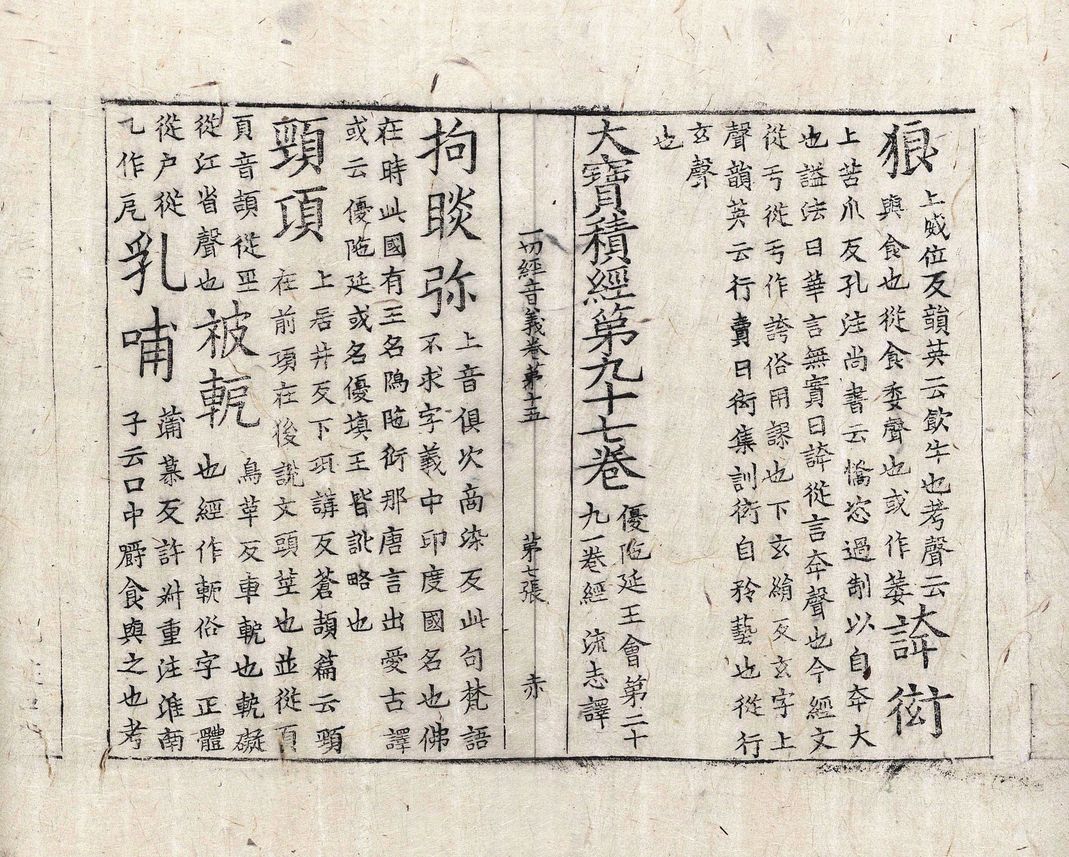 狼 上威位反韻英云飲牛也考聲云
與食也從食委聲也或作萎 誇衒
上苦爪反孔注尚書云憍恣過制以自夲大
也謚法曰華言無實曰誇從言夲聲也今經文
從丂從丂作誇俗用謬也下玄絹反玄字上
聲韻英云行賣曰衒集訓衒自矜藝也從行
玄聲
也
大寶積經第九十七卷 優陁延王會第二十
九一卷經 流志譯
一切經音義卷第十五 第七張 赤
拘睒弥 上音俱次商染反此句梵語
不求字義中印度國名也佛
在時此國有王名隝陁衍那唐言出愛古譯
或云優陁延或名優填王皆訛略也
頸項 上居井反下項講反蒼頡篇云頸
在前項在後說文頭莖也並從頁
頁音頡從巠
從江省聲也 被軶 烏革反車軶也軶礙
也經作軛俗字正體
從户從
乙作戹 乳哺 蒲慕反許 重注淮南
子云口中嚼食與之也考